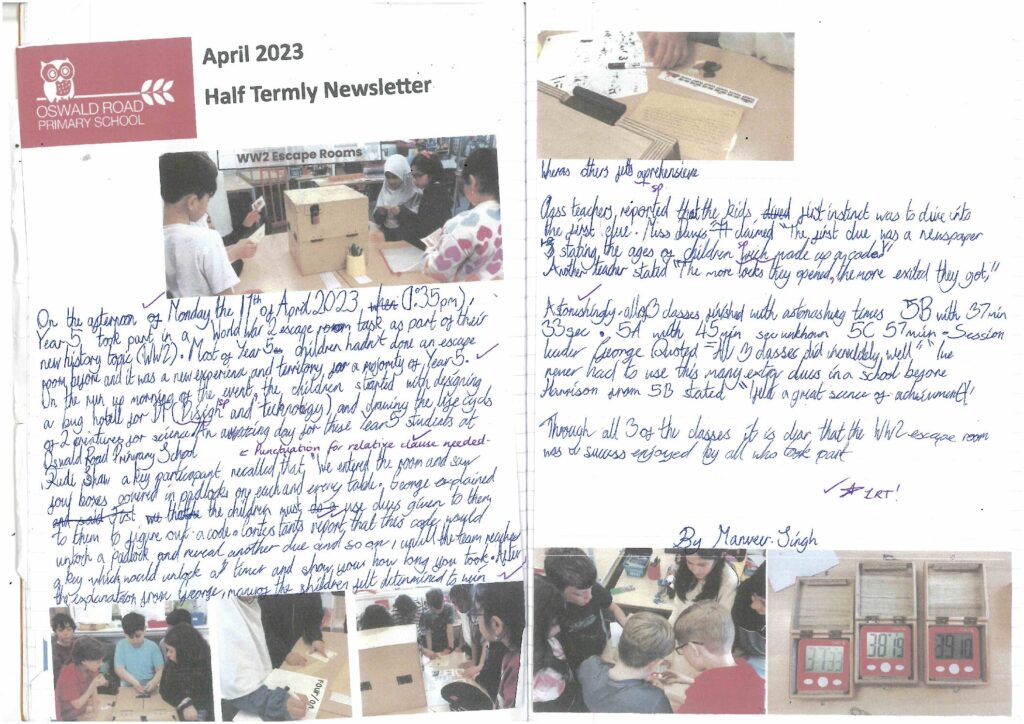 April 2023
Half Termly Newsletter
OSWALD ROAD
PRIMARY SCHOOL
WW2 Escape Rooms
On the afternoon of Monday the 17th of April 2023 (1:35pm),
Year 5, took part in a World War 2 escape room task as part of their
new history topic (WW2). Most of Year 5 children hadn't done an escape
room before and it was a new experience and territory for a majority of Year 5.
On the run up morning of the event, the children started with designing
a bug hotel for DT (Design and technology), and drawing the life cycls
of 2 creatures for science. An amazing day for these Year 5 students at
Oswald Road Primary School
< Punctuation for relative clause needed.
Rudi Shaw a key participant recalled that "We entered the room and saw
four boxes covered in padlocks on each and every table. George explained
to them the children must use clues given to them
to figure out a code. Contestants report, that this code would
unlock a padlock and reveal another clue and so on, until the team reaches
a key which would unlock a timer and show your how long you took. After
the explanation from George, many of the children felt determined to win
FOUR/ON
Wheras others felt aprehensieve
sp
Class teachers, reported that the kids, first instinct was to dive into
the first clue. Miss claimed "The first clue was a newspaper
stating the ages of children wich made up a code"
sp
Another teacher stated "The more locks they opened, the more exited they got,"
Astonishingly all 3 classes finished with astonashing times 5B with 37min
33 sec. 5A with 45min sec unknown 5C 57 min. Session
leader George Quoted "All 3 classes did incredibly well" "I've
never had to use this many extra clues in a school before
Harrison from 5B stated "I felt a great scence of achievment"!
Through all 3 of the classes it is clear that the WW2 escape room
was a sucess enjoyed by all who took part
1RT!
By Manveer Singh
37 33
38 19
39 10